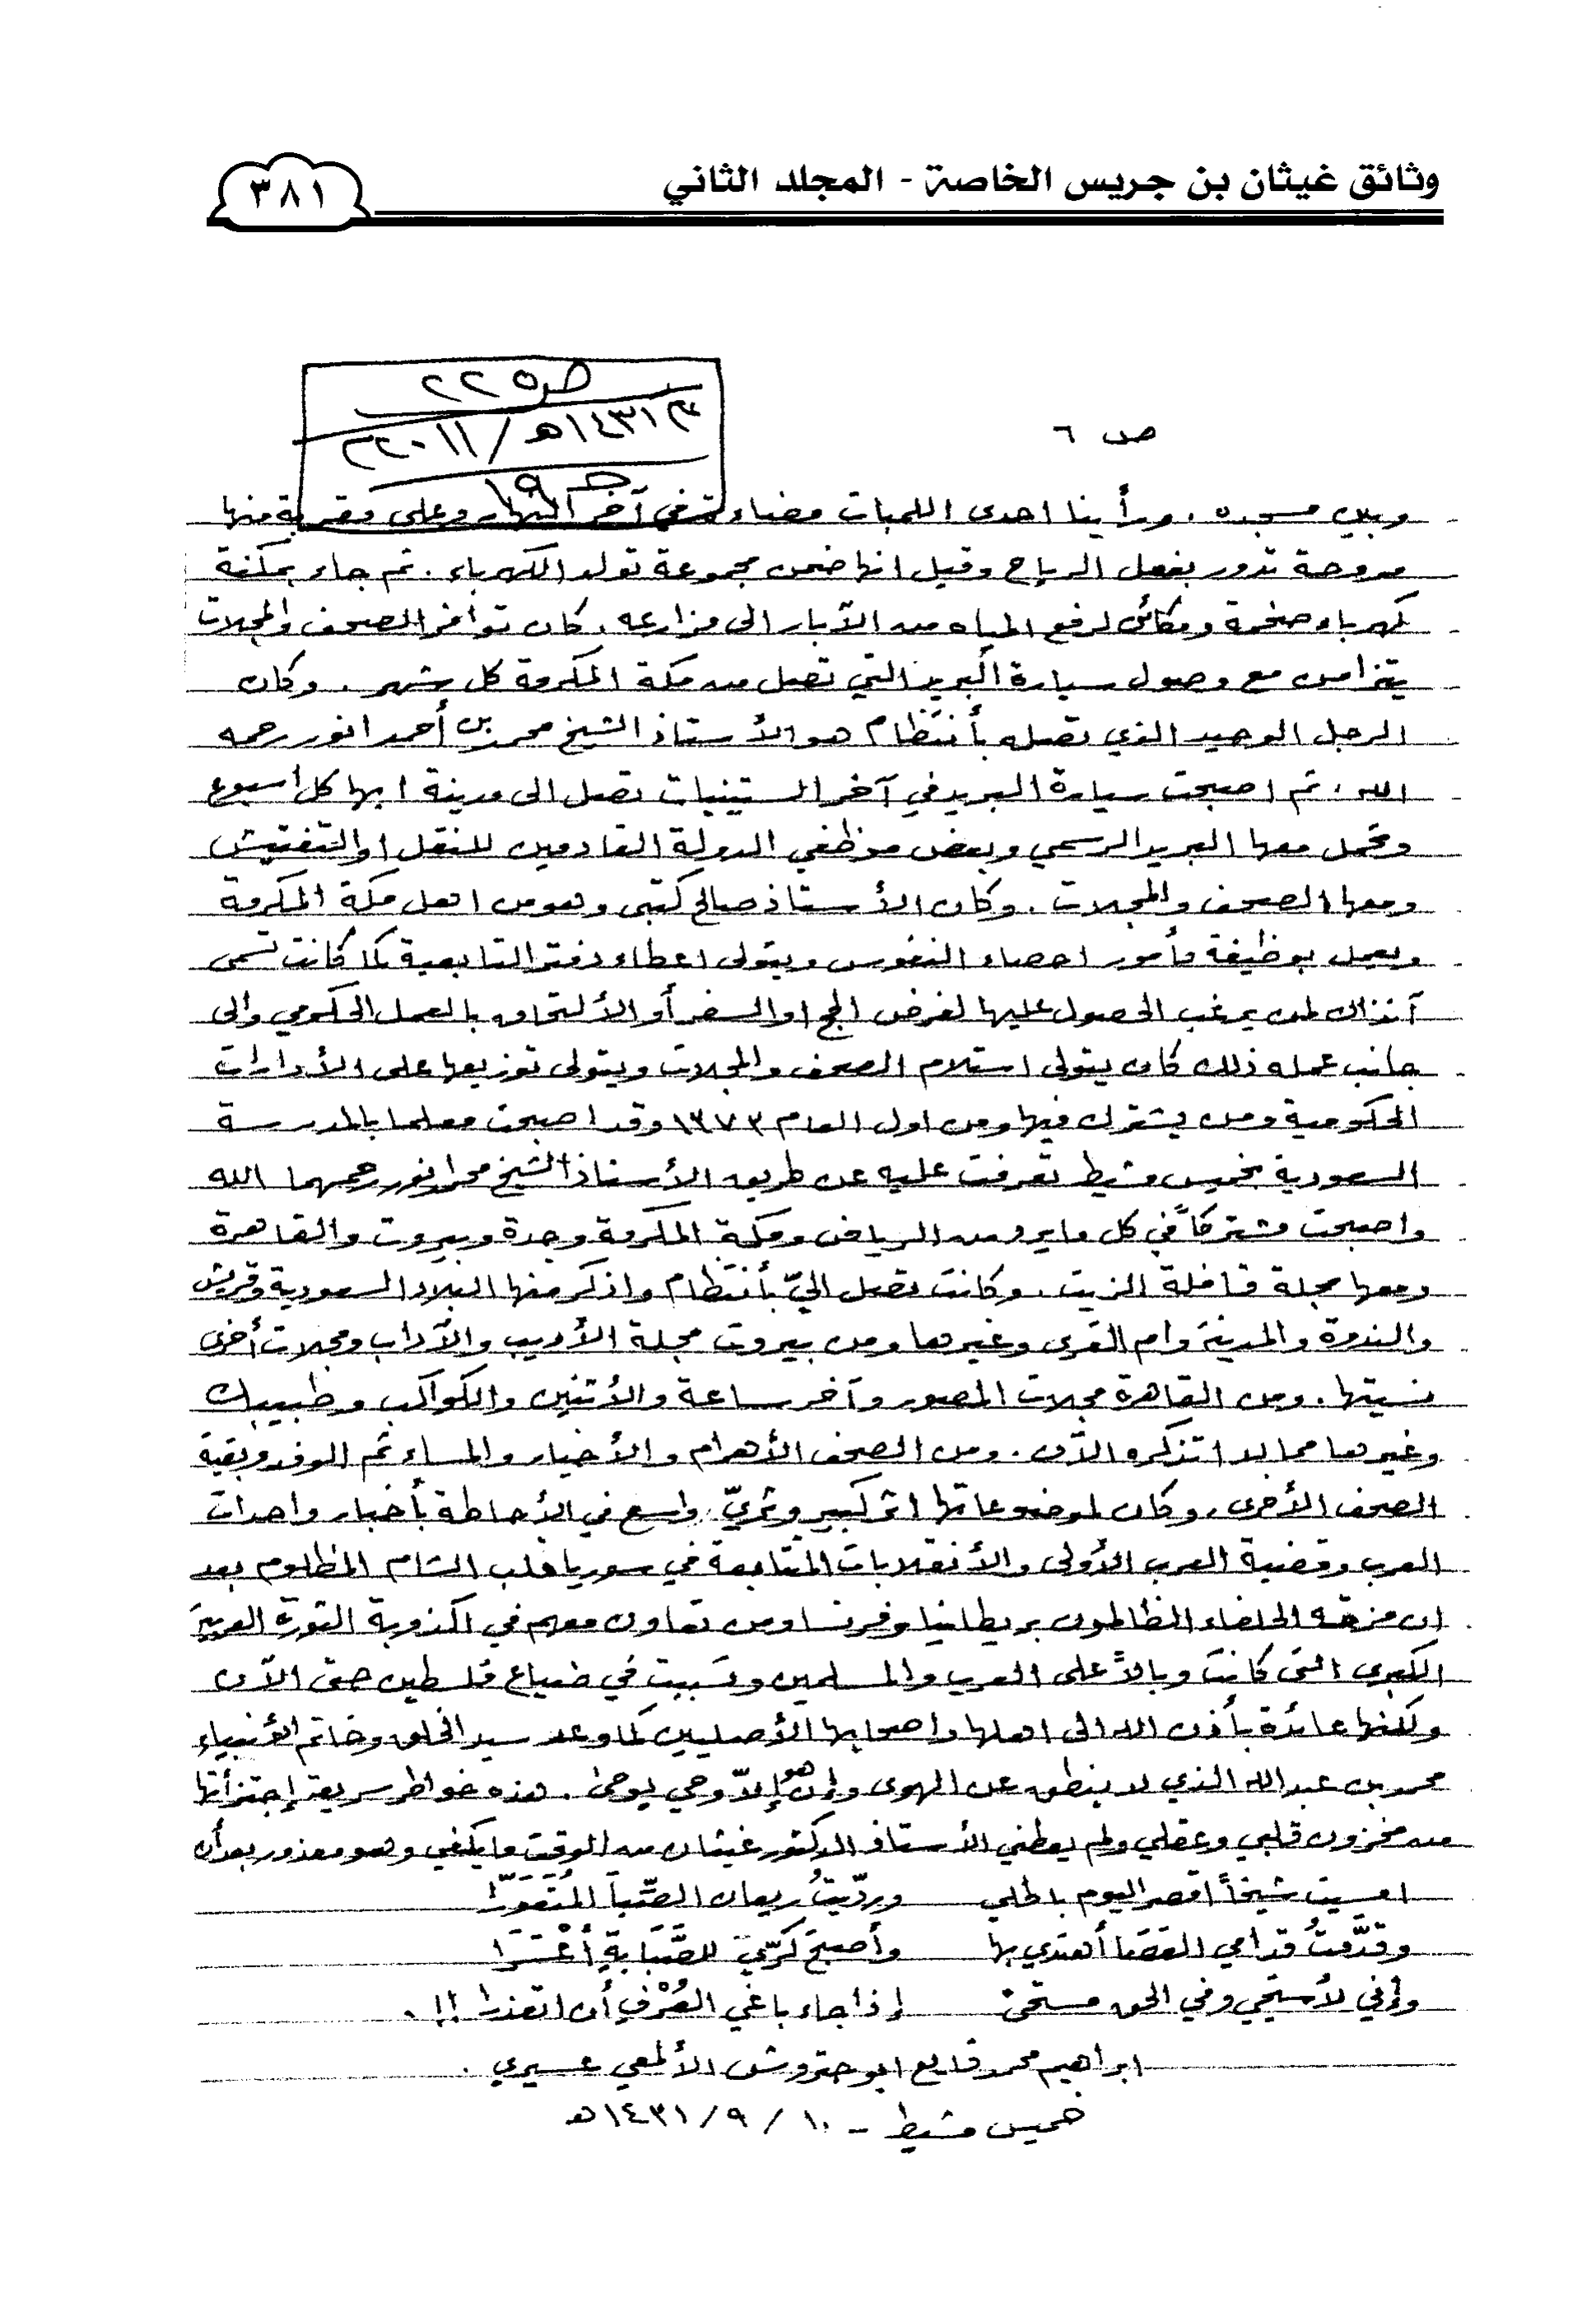 وثائق غيثان بن جريس الخاصة - المجلد الثاني
٣٨١
ص ٢٢٥
١٤٣١هـ / ٢٠١١م
جـ ١٩
ص ٦
وبين مسجده . ورأينا احدى اللمبات مضاءة في آخر النهار وعلى مقربة منها
مروحة تدور بفعل الرياح وقيل انها ضمن مجموعة تولد الكهرباء . ثم جاء بمكنة
كهرباء ضخمة ومكائن لرفع المياه من الآبار الى مزارعه . كان توافر الصحف والمجلات
يتزامن مع وصول سيارة البريد التي تصل من مكة المكرمة كل شهر . وكان
الرجل الوحيد الذي تصله بأنتظام هو الأستاذ الشيخ محمد بن أحمد انور رحمه
الله . ثم اصبحت سيارة البريد في آخر الستينيات تصل الى مدينة ابها كل اسبوع
وتحمل معها البريد الرسمي وبعض موظفي الدولة القادمين للنقل او التفتيش
ومعها الصحف والمجلات . وكان الأستاذ صالح كتبي وهو من اهل مكة المكرمة
ويعمل بوظيفة مأمور احصاء النفوس ويتولى اعطاء دفتر التابعية كما كانت تسمى
آنذاك لمن يرغب الحصول عليها لغرض الحج او السفر أو الألتحاق بالعمل الحكومي والى
جانب عمله ذلك كان يتولى استلام الصحف والمجلات ويتولى توزيعها على الأدارات
الحكومية ومن يشترك فيها ومن اول العام ١٣٧٣ وقد اصبحت معلما بالمدرسة
السعودية بخميس مشيط تعرفت عليه عن طريق الأستاذ الشيخ محمد انور رحمهما الله
واصبحت مشتركاً في كل ما يرد من الرياض ومكة المكرمة وجدة وبيروت والقاهرة
ومعها مجلة قافلة الزيت . وكانت تصل اليّ بأنتظام واذكر منها البلاد السعودية وقريش
والندوة والمدينة وام القرى وغيرها ومن بيروت مجلة الأديب والآداب ومجلات أخرى
نسيتها . ومن القاهرة مجلات المصور وآخر ساعة والأثنين والكواكب وطبيبك
وغيرها مما لا اتذكره الآن . ومن الصحف الأهرام والأخبار والمساء ثم الوفد وبقية
الصحف الأخرى . وكان لموضوعاتها اثر كبير وثريّ واسع في الأحاطة بأخبار واحداث
العرب وقضية العرب الأولى والأنقلابات المتتابعة في سوريا قلب الشام المظلوم بعد
ان مزقه الحلفاء الظالمون بريطانيا وفرنسا ومن تعاون معهم في اكذوبة الثورة العربية
الكبرى التى كانت وبالاً على العرب والمسلمين وتسببت في ضياع فلسطين حتى الآن
ولكنها عائدة بأذن الله الى اهلها واصحابها الأصليين كما وعد سيد الخلق وخاتم الأنبياء
محمد بن عبدالله الذي لا ينطق عن الهوى وإن هو إلاّ وحي يوحىٰ . هذه خواطر سريعة إجتزأتها
من مخزون قلبي وعقلي ولم يعطني الأستاذ الدكتور غيثان من الوقت ما يكفي وهو معذور بعد أن
امسيت شيخاً اقصر اليوم باطلي ورديتُ ريعان الصّبا المُتَعَوّرا
وقدّمتُ قدامي العَصَا أهتدي بها وأصبحَ كرّيَ للصَّبَابَةِ أعْسَرَا
وإني لأستحي وفي الحق مستحىً إذا جاء باغي العُرْفِ أن اتعذرا !! .
ابراهيم محمد فايع ابو حتروش الألمعي عسيري .
خميس مشيط - ١٠ / ٩ / ١٤٣١هـ